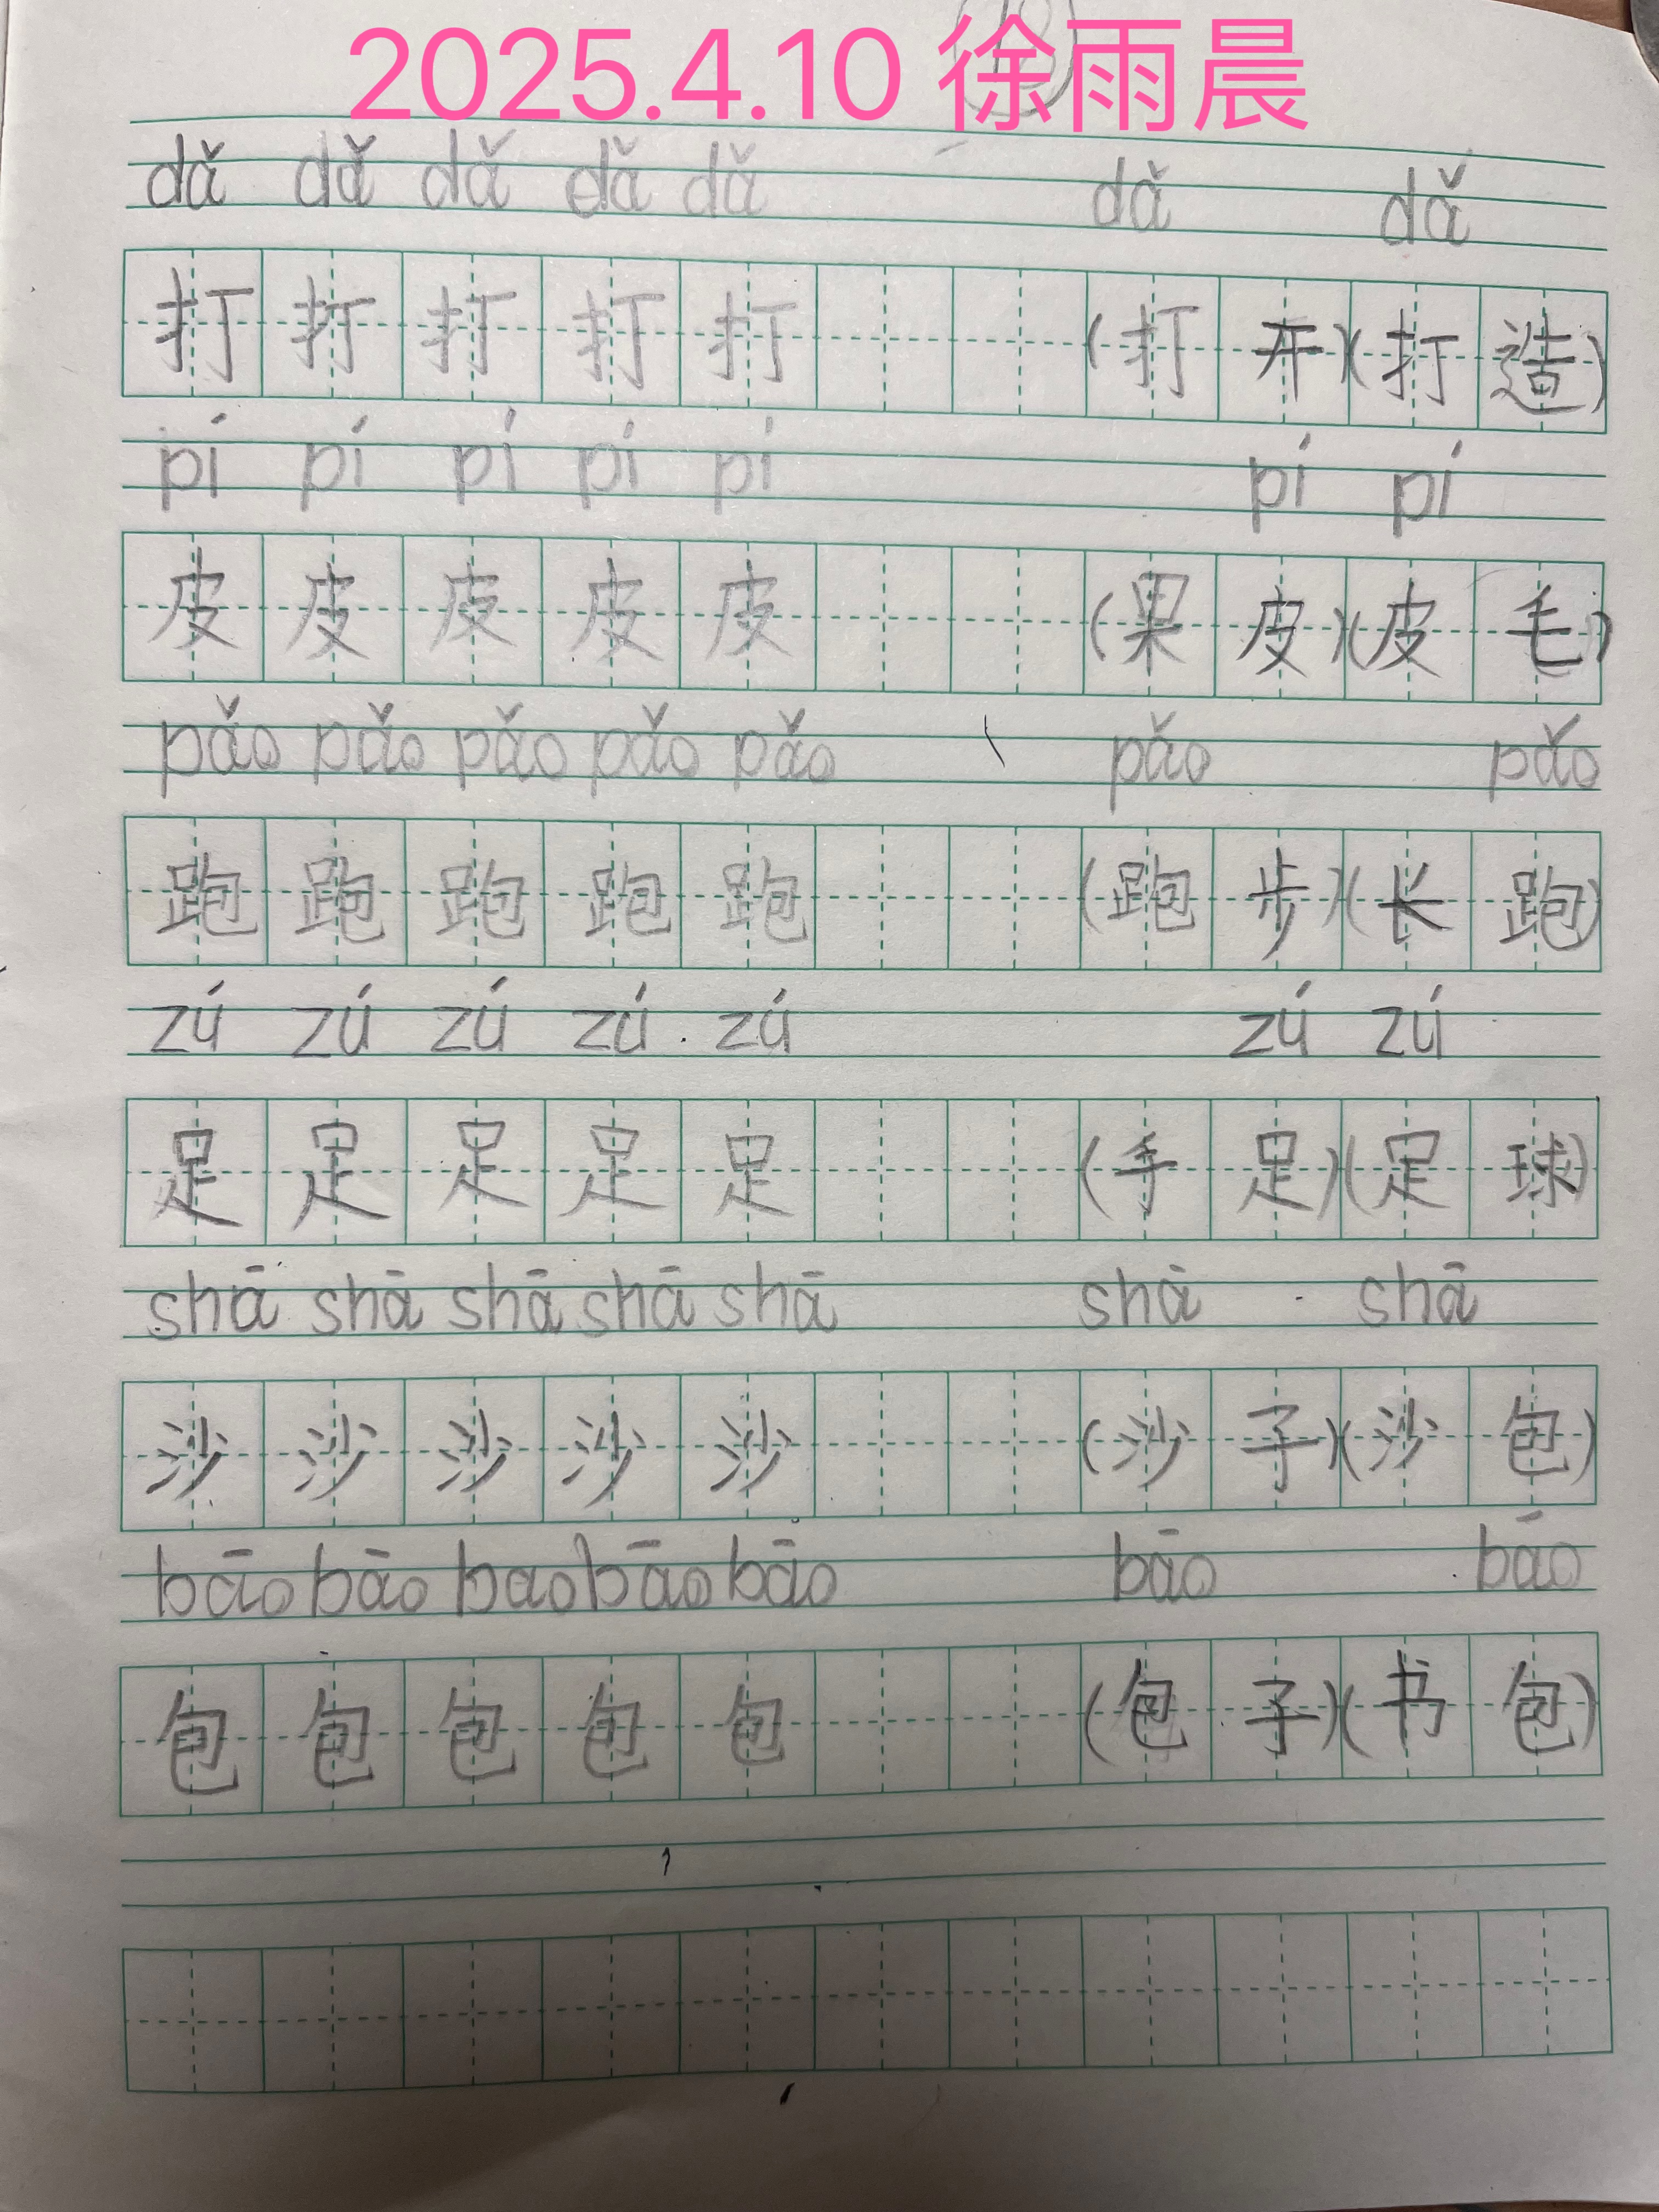 2025.4.10 徐雨晨
dǎ dǎ dǎ dǎ dǎ dǎ dǎ
打 打 打 打 打 (打 开)(打 造)
pí pí pí pí pí pí pí
皮 皮 皮 皮 皮 (果 皮)(皮 毛)
pǎo pǎo pǎo pǎo pǎo pǎo pǎo
跑 跑 跑 跑 跑 (跑 步)(长 跑)
zú zú zú zú zú zú zú
足 足 足 足 足 (手 足)(足 球)
shā shā shā shā shā shā shā
沙 沙 沙 沙 沙 (沙 子)(沙 包)
bāo bāo bao bāo bāo bāo bāo
包 包 包 包 包 (包 子)(书 包)